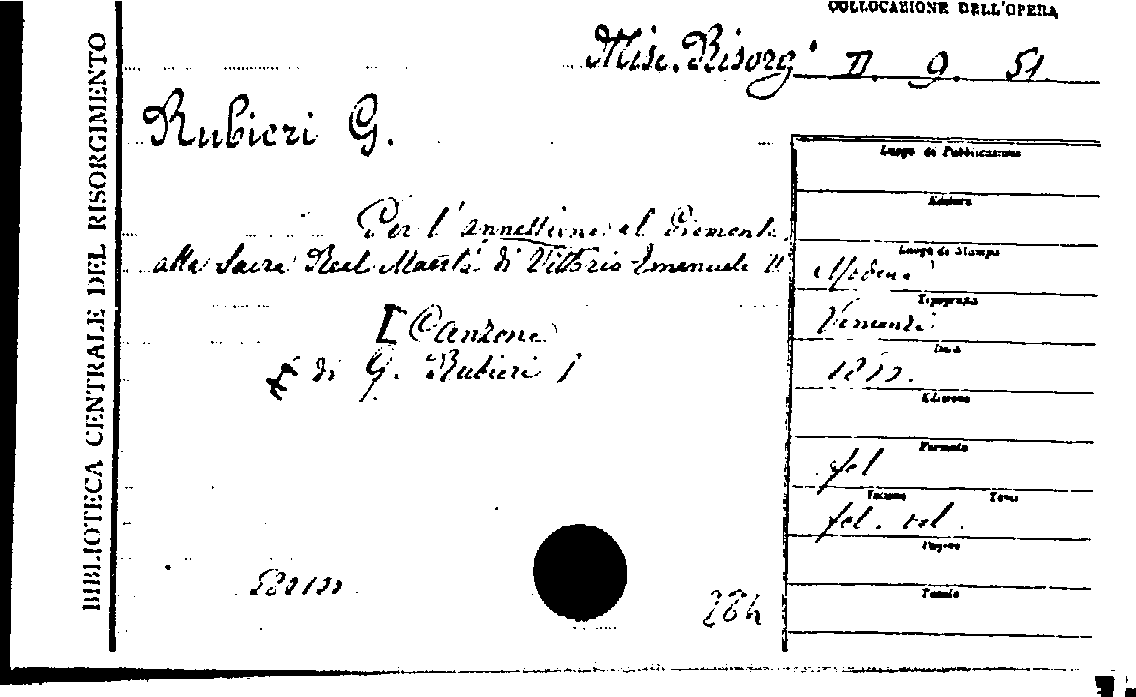 COLLOCAZIONE DELL'OPERA
Misc. Risorg. II. 9. 51
BIBLIOTECA CENTRALE DEL RISORGIMENTO
Rubieri G.
Per l'annessione al Piemonte
alla Sacra Real Maestà di Vittorio Emanuele II
[Canzone
di G. Rubieri]
Luogo di Pubblicazione
Editore
Luogo di Stampa
Modena
Tipografia
Data
Edizione
Formato
Volume Tomi
fol. vol.
Pagine
Tavole
284